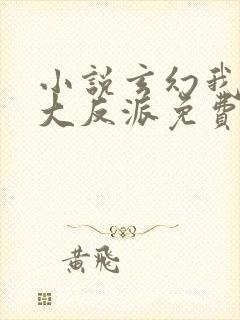 小説玄幻我
大反派免費
黃飛